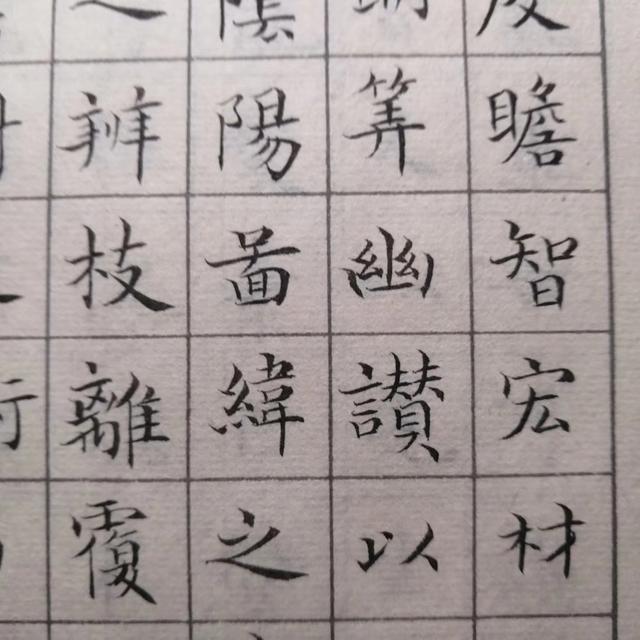 度瞻智宏材
明筭幽讚以
陰陽啚緯之
之辨枝離覆